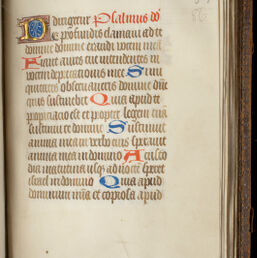 dirigetur Psalmus dd
De profundis clamavi ad te
domine domine exaudi vocem mea
Fiant aures tue intendentes in
vocem deprecationis mee Si ini
quitates observaveris domine dñe
quis sustinebit Quia apud te
propiciacio est et propter legem tuã
sustinui te domine Sustinuit
anima mea in verbo eius speravit
anima mea in domino A custo
dia matutina usque ad noctē speret
israel in domino Quia apud
dominum mīa et copiosa apud